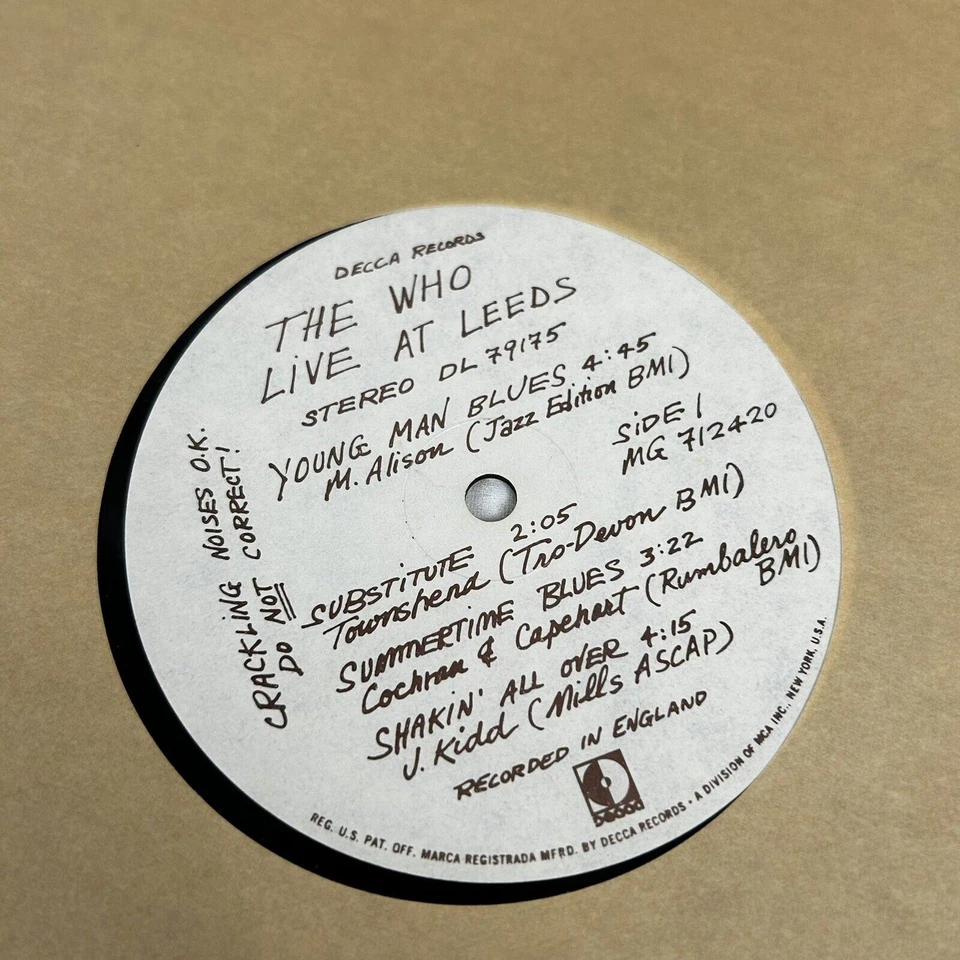 DECCA RECORDS
THE WHO
LiVE AT LEEDS
STEREO DL 79175
YOUNG MAN BLUES 4:45
M. Alison (Jazz Edition BMI)
SiDE 1
MG 712420
SUBSTITUTE 2:05
Townshend (Tro-Devon BMI)
SUMMERTIME BLUES 3:22
Cochran & Capehart (Rumbalero
BMI)
SHAKIN' ALL OVER 4:15
J. Kidd (Mills ASCAP)
RECORDED IN ENGLAND
DECCA
CRACKLING NOISES O.K.
DO NOT CORRECT!
REG. U.S. PAT. OFF. MARCA REGISTRADA MFRD. BY DECCA RECORDS • A DIVISION OF MCA INC., NEW YORK, U.S.A.